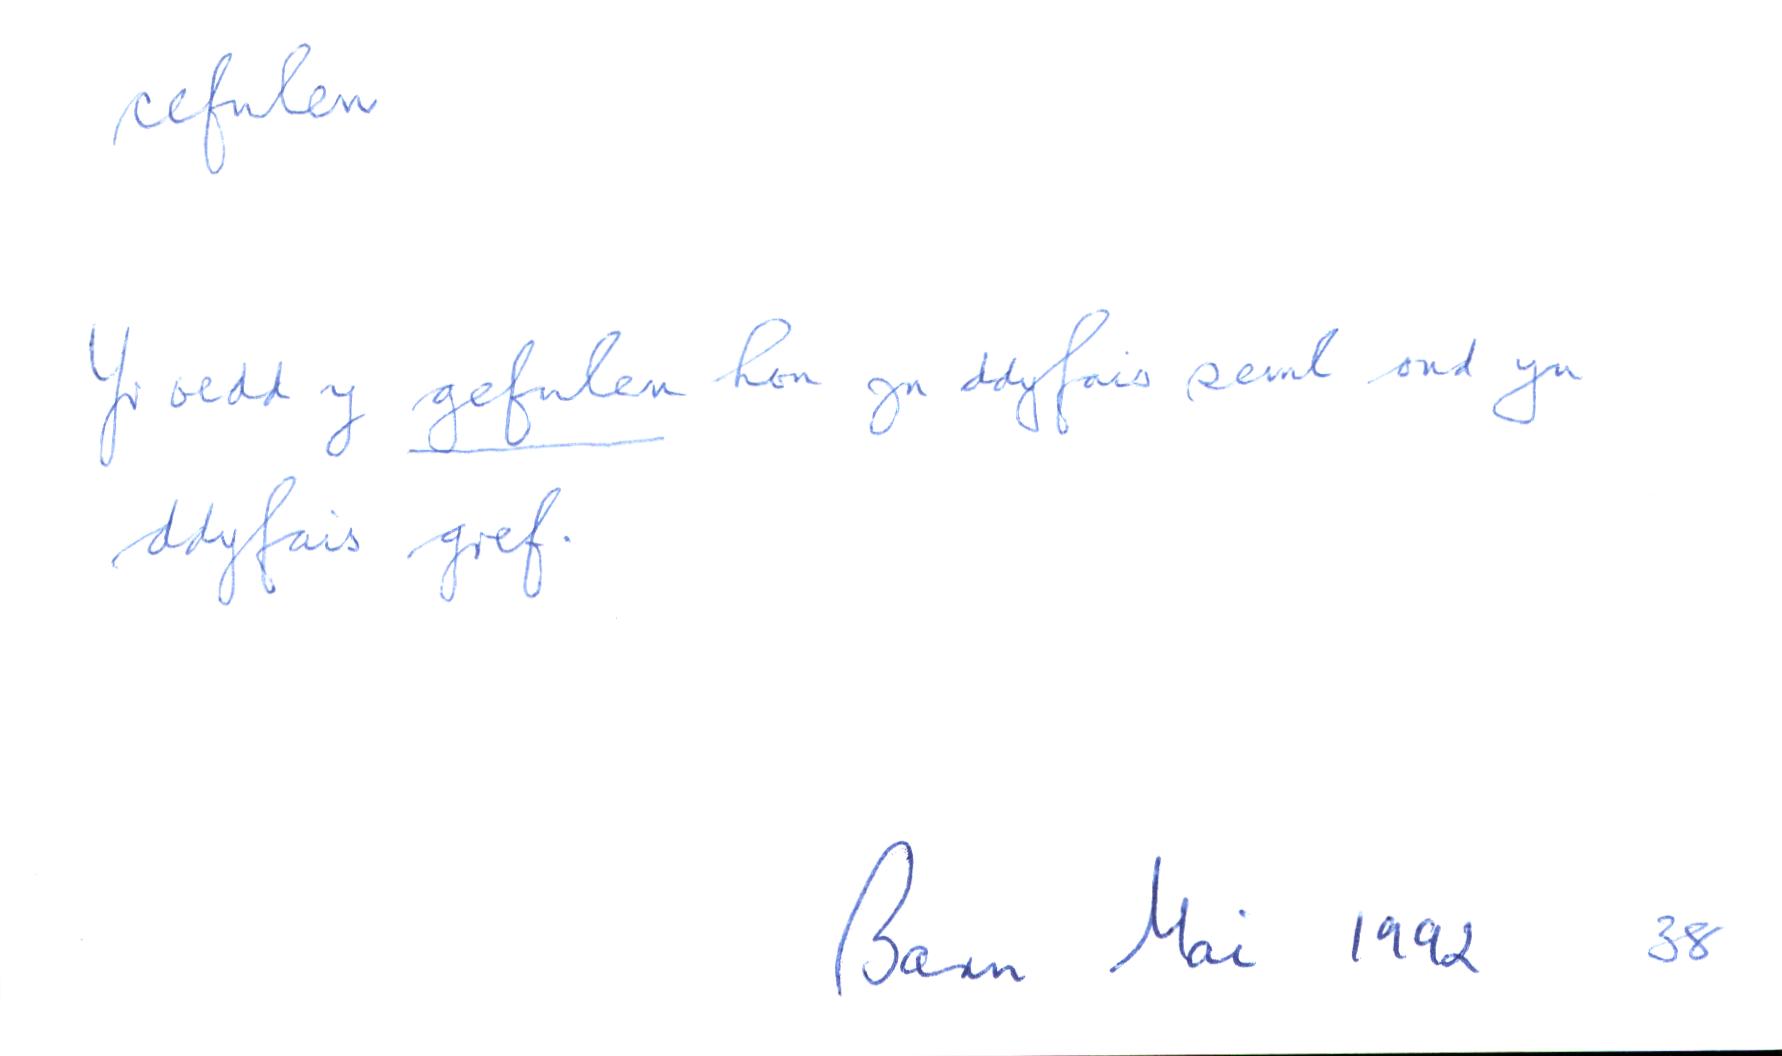 cefnlen
Yr oedd y gefnlen hon yn ddyfais seml ond yn
ddyfais gref.
Barn Mai 1992 38